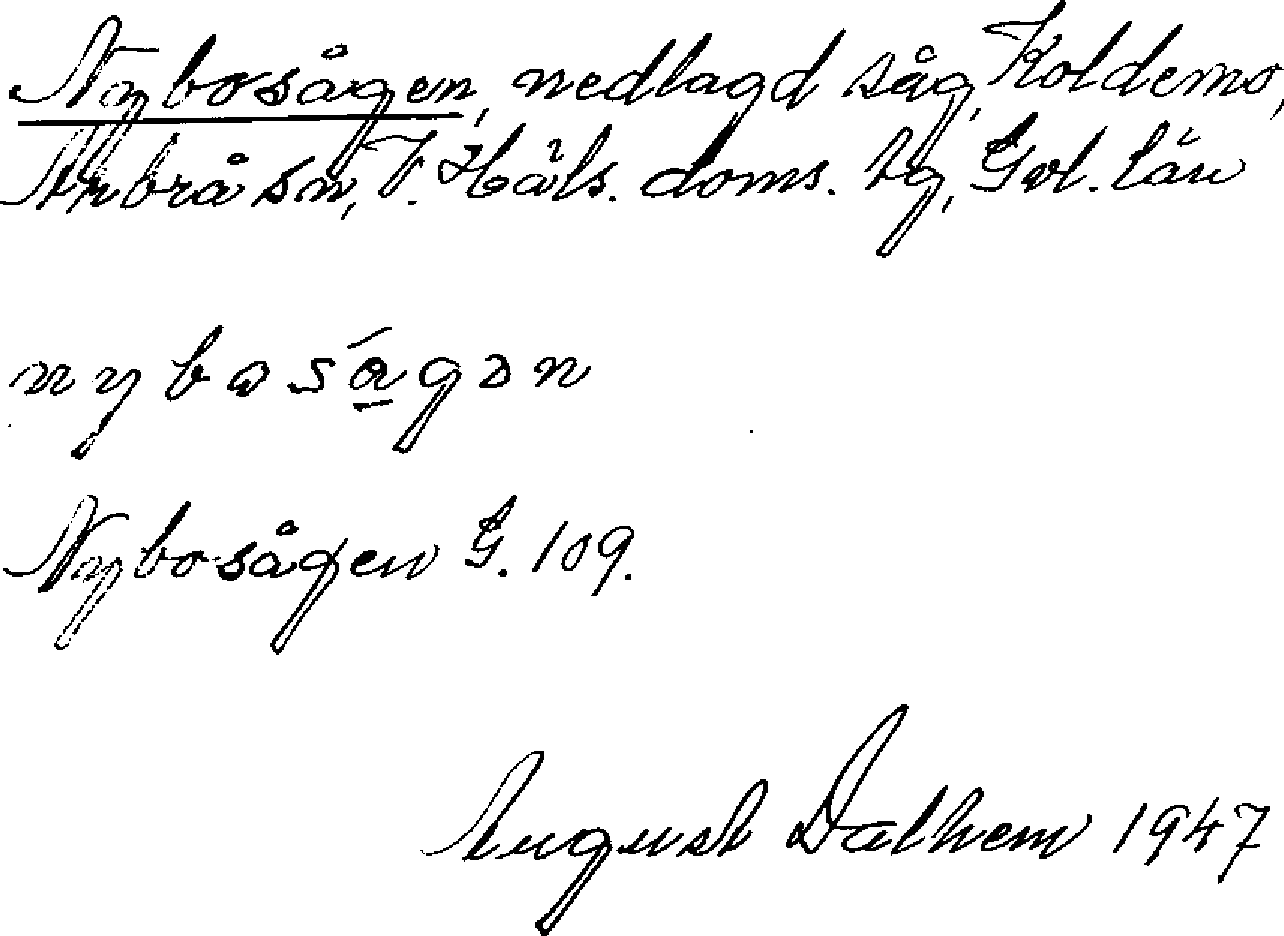 Nybosågen, nedlagd såg, Koldemo,
Arbrå sn, V. Häls. doms. tg, Gvl. län
nybosågən
Nybosågen G. 109.
August Dalhem 1947